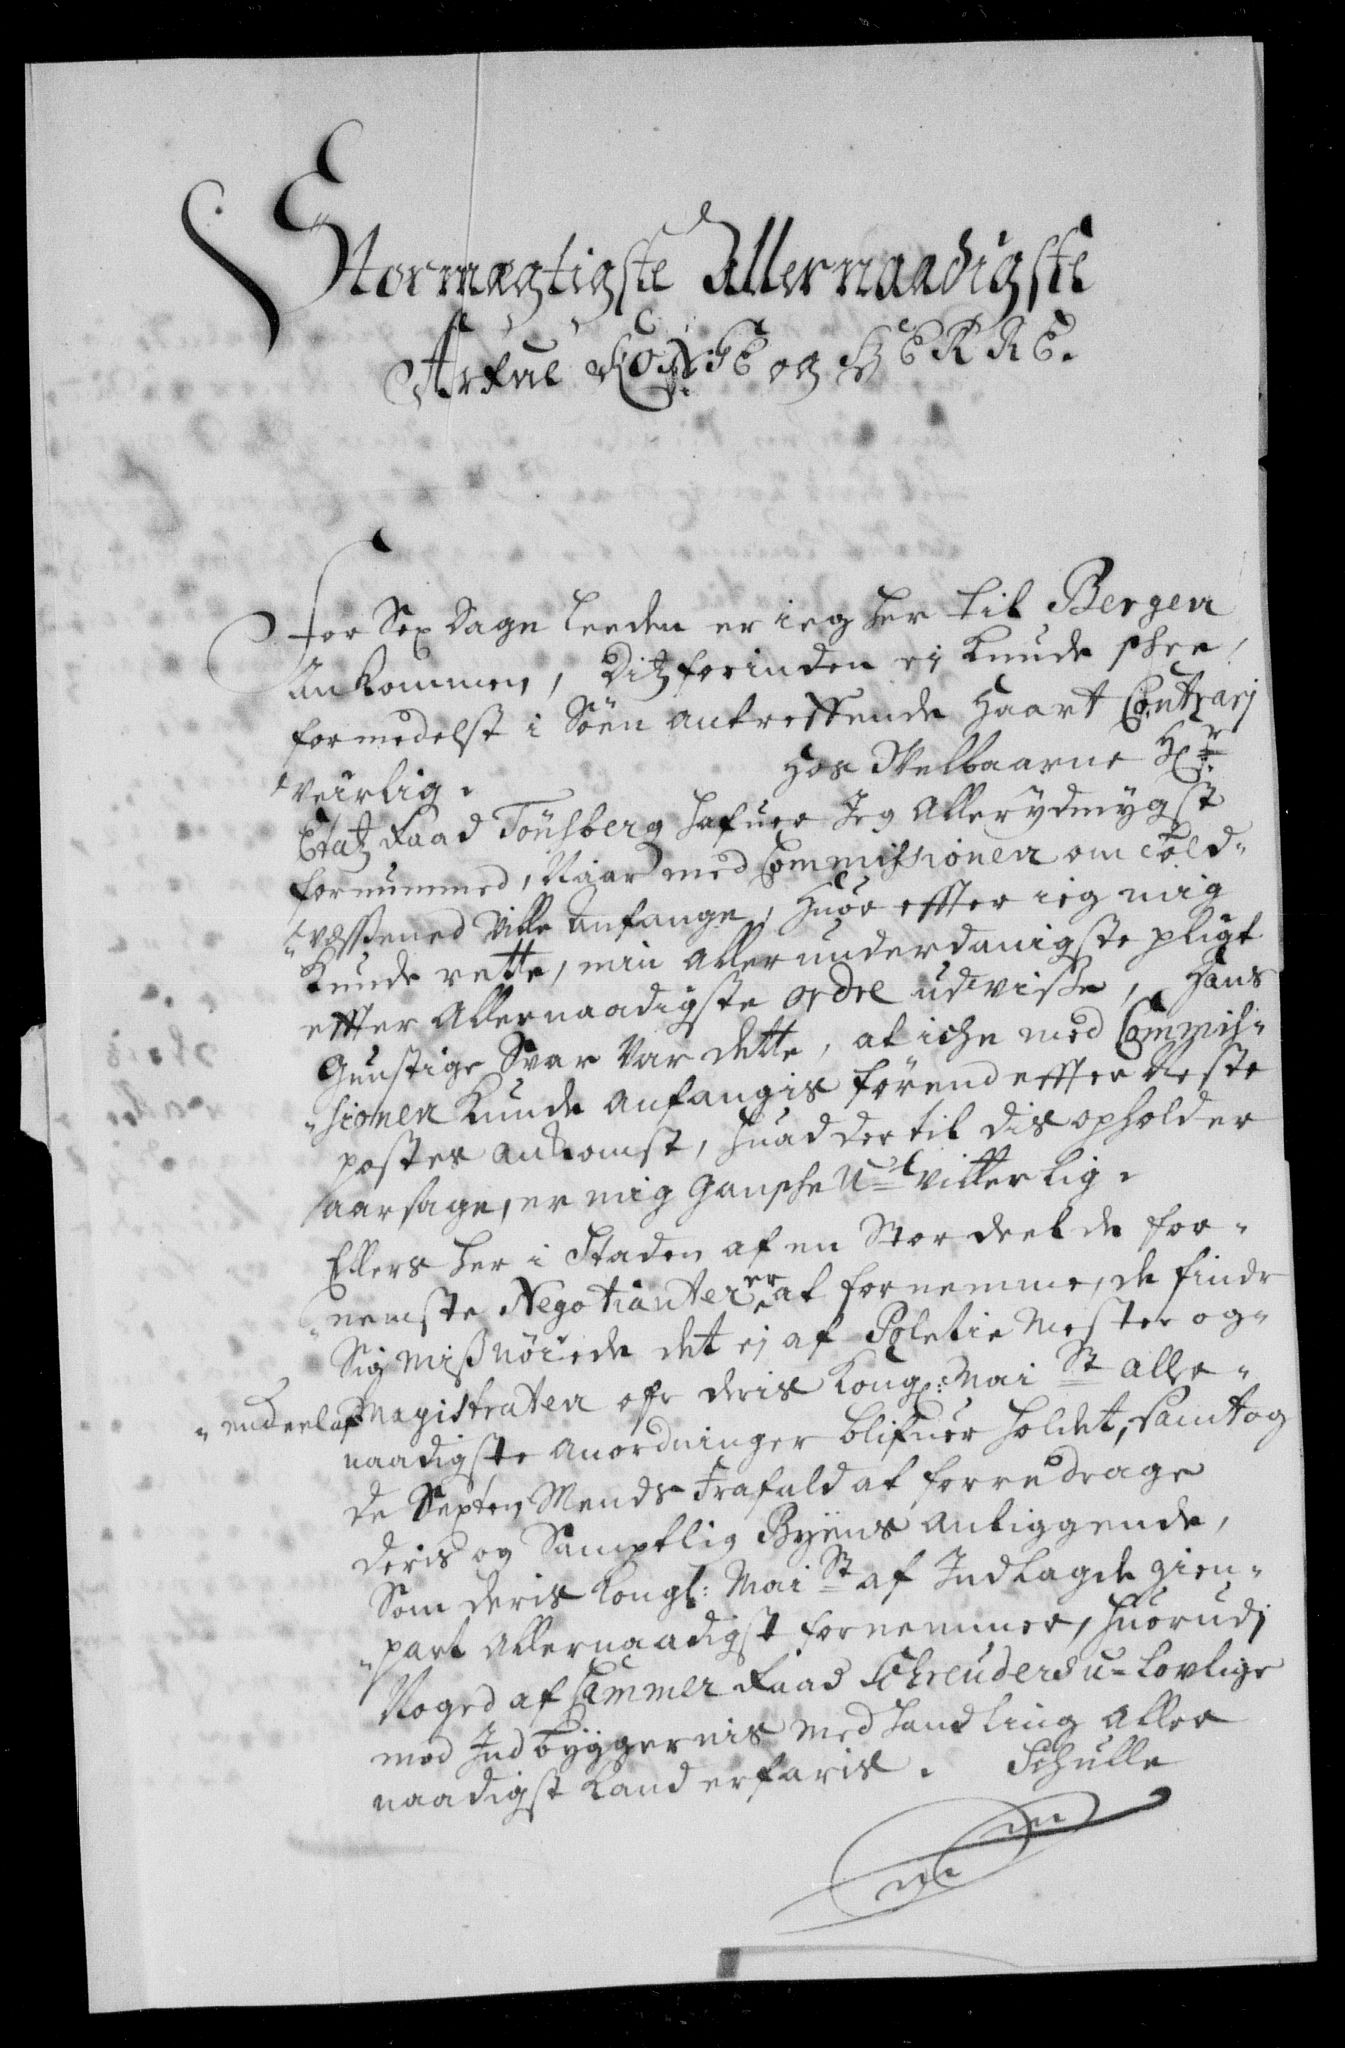 Stormægtigste Allernaadigste
Arfue KONGE og HERRE.
For Sex Dage leeden er ieg her til Bergen
Ankommen, Ditz forinden ej kunde skee,
formedelst i Söen antreffende Haart Contrarj
Veirlig. Hos Welbaarne Hr.
Etatz Raad Tönsberg hafuer Jeg Allerydmygst
fornummed, Naar med Commissionen om Told-
væssened ville anfange, Huor effter ieg mig
kunde rette, min Allerunderdanigste pligt
effter Allernaadigste ordre udvisse, Hans
Gunstige Svar Var dette, at icke med Commis-
sionen kunde anfangis förend effter Neste
postes ankomst, huad der til dis opholder
aarsage, er mig Ganske U-vitterlig.
Ellers her i Staden af en Stor deel de for-
nemste Negotianter er at fornemme, de finde
Sig misnöiede det ej af Poletie Mester og
endeel af Magistraten ofr deris Kongl: Mai St aller-
naadigste anordninger blifuer holdet, samt og
de Sexten Mends Frafald at forredrage
deris og Samptlig Byens Anliggende,
Som deris Kongl: Mai St af Indlagde gien-
part Allernaadigst fornemmer, huorudj
Noged af Cammer Raad Schreuders u-lovlige
mod Indbyggernis Medhandling Aller
naadigst kand erfaris. Schulle